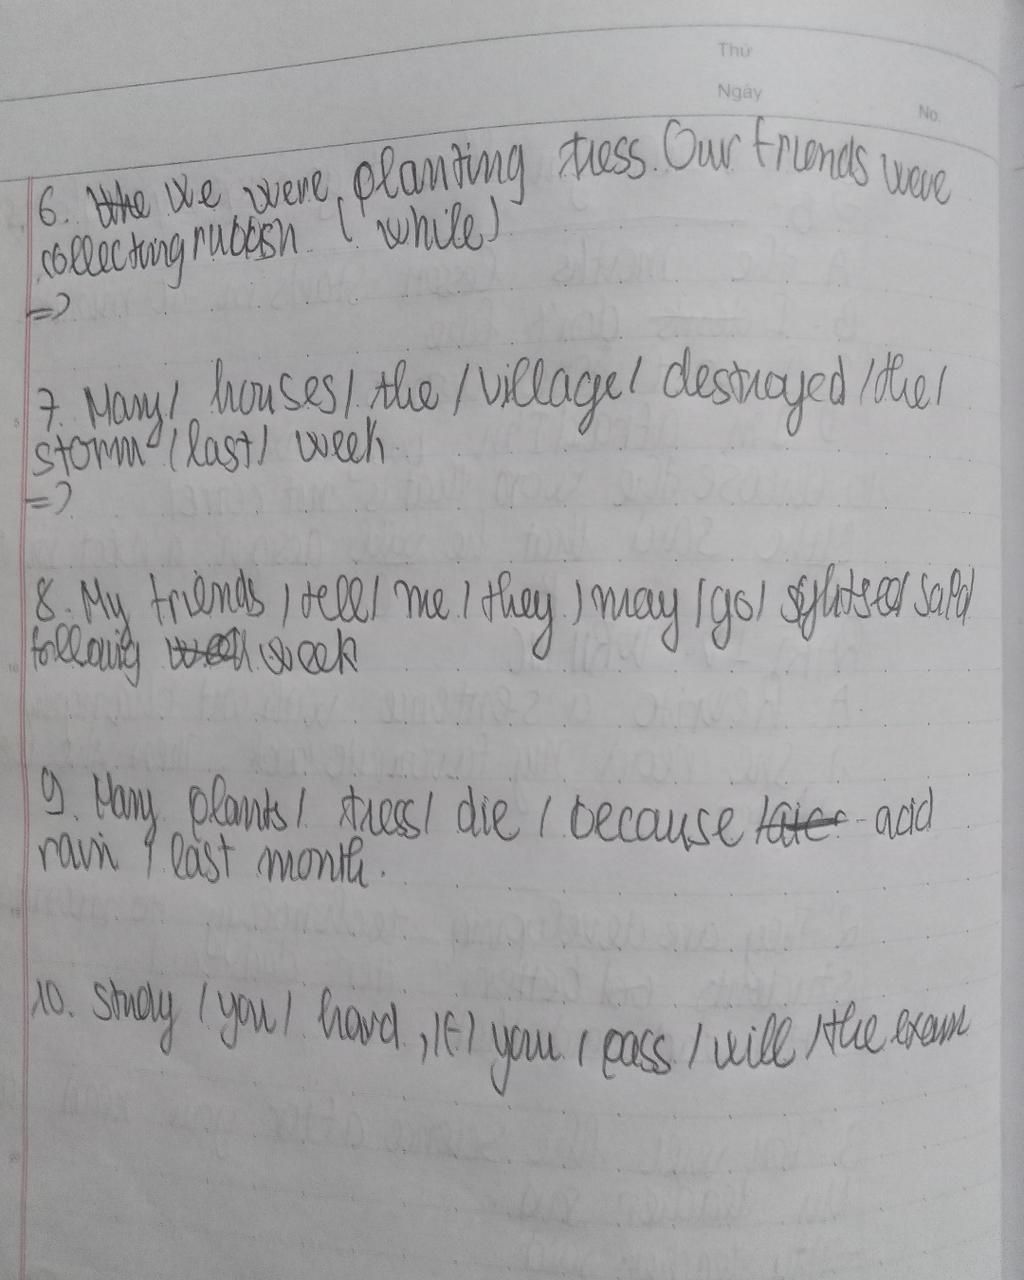 Thứ
Ngày
No.
6. We were planting tress. Our friends were
collecting rubbish. (while)
=>
7. Many / houses / the / village / destroyed / the /
storm / last / week.
=>
8. My friends / tell / me / they / may / go /
following week
9. Many plants / tress / die / because acid
rain / last month.
10. Study / you / hard, / If / you / pass / will / the exam